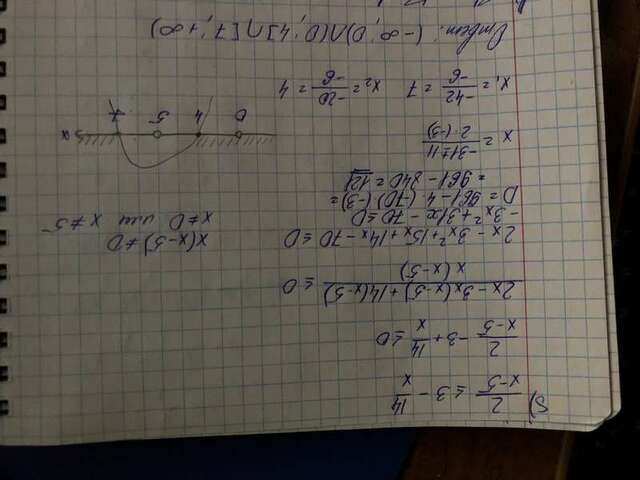 б) 2/(x-5) ≤ 3 - 14/x
2/(x-5) - 3 + 14/x ≤ 0
(2x - 3x(x-5) + 14(x-5))/(x(x-5)) ≤ 0
2x - 3x² + 15x + 14x - 70 ≤ 0
-3x² + 31x - 70 ≤ 0
D = 961 - 4·(70)·(-3) =
= 961 - 840 = 121
x = (-31±11)/(2·(-3))
x₁ = -42/-6 = 7 x₂ = -20/-6 = 4
x(x-5) ≠ 0
x ≠ 0 или x ≠ 5
0 4 5 7 x
Ответ: (-∞; 0)∩(0; 4]∩[7; +∞)